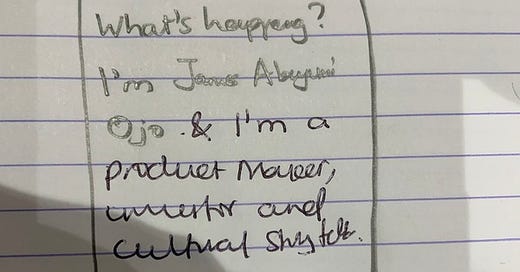 What's happening?
I'm James Abayomi
Ojo & I'm a
product maker,
investor and
cultural